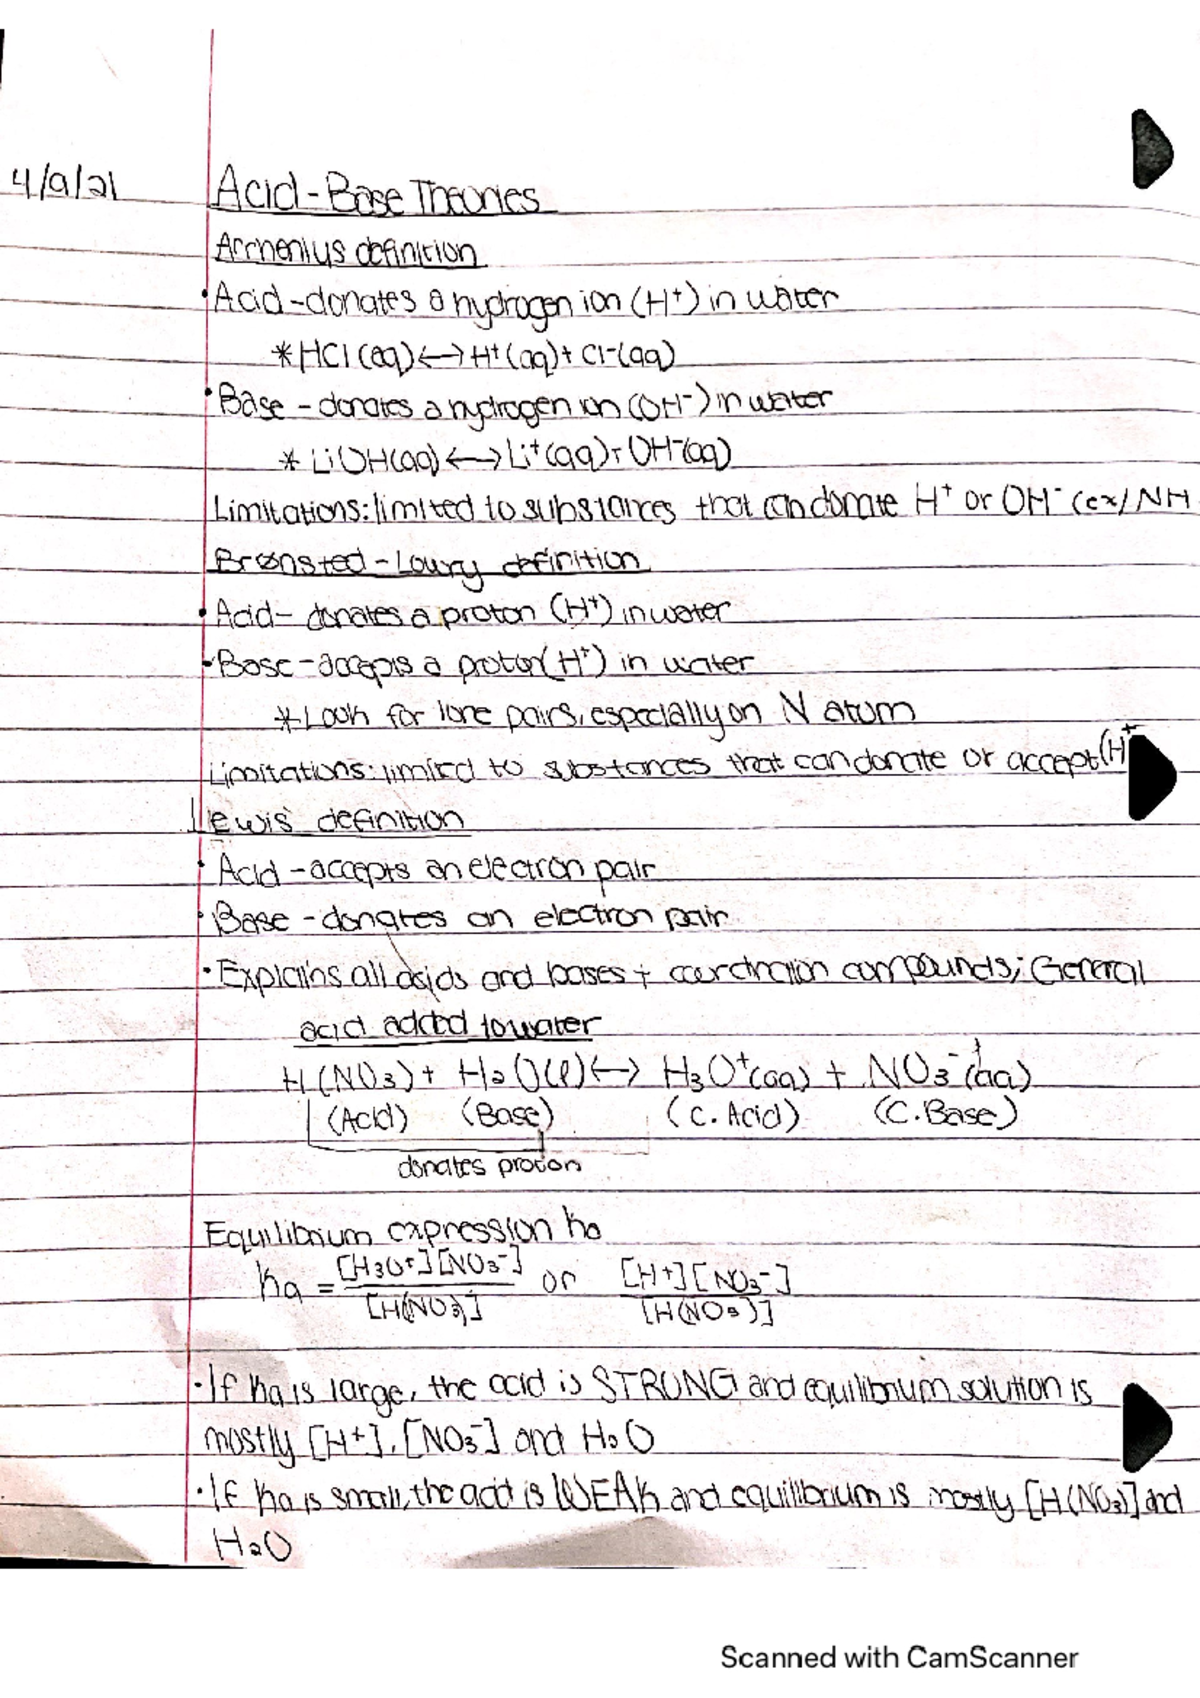 4/9/21
Acid-Base Theories
Arrhenius definition
• Acid - donates a hydrogen ion (H⁺) in water
* HCl (aq) ⟷ H⁺(aq) + Cl⁻(aq)
• Base - donates a hydrogen ion (OH⁻) in water
* LiOH(aq) ⟷ Li⁺(aq) + OH⁻(aq)
Limitations: limited to substances that can donate H⁺ or OH⁻ (ex/ NH
Brønsted-Lowry definition
• Acid - donates a proton (H⁺) in water
• Base - accepts a proton (H⁺) in water
* Look for lone pairs, especially on N atom
Limitations: limited to substances that can donate or accept (H⁺
Lewis definition
• Acid - accepts an electron pair
• Base - donates an electron pair
• Explains all acids and bases + coordination compounds; General
acid added to water
H(NO₃) + H₂O(l) ⟷ H₃O⁺(aq) + NO₃⁻(aq)
(Acid) (Base) (C. Acid) (C. Base)
donates proton
Equilibrium expression ka
ka = [H₃O⁺][NO₃⁻] / [H(NO₃)] or [H⁺][NO₃⁻] / [H(NO₃)]
• If ka is large, the acid is STRONG and equilibrium solution is
mostly [H⁺], [NO₃⁻] and H₂O
• If ka is small, the acid is WEAK and equilibrium is mostly [H(NO₃)] and
H₂O
Scanned with CamScanner